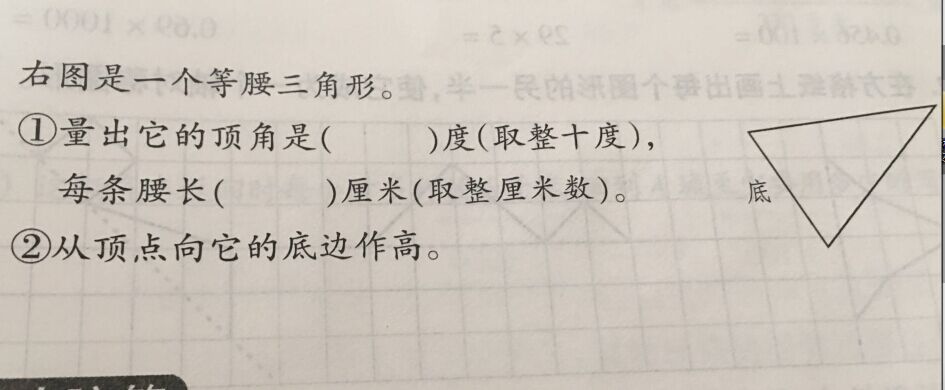 右图是一个等腰三角形。
①量出它的顶角是(　　)度(取整十度),
每条腰长(　　)厘米(取整厘米数)。
底
②从顶点向它的底边作高。